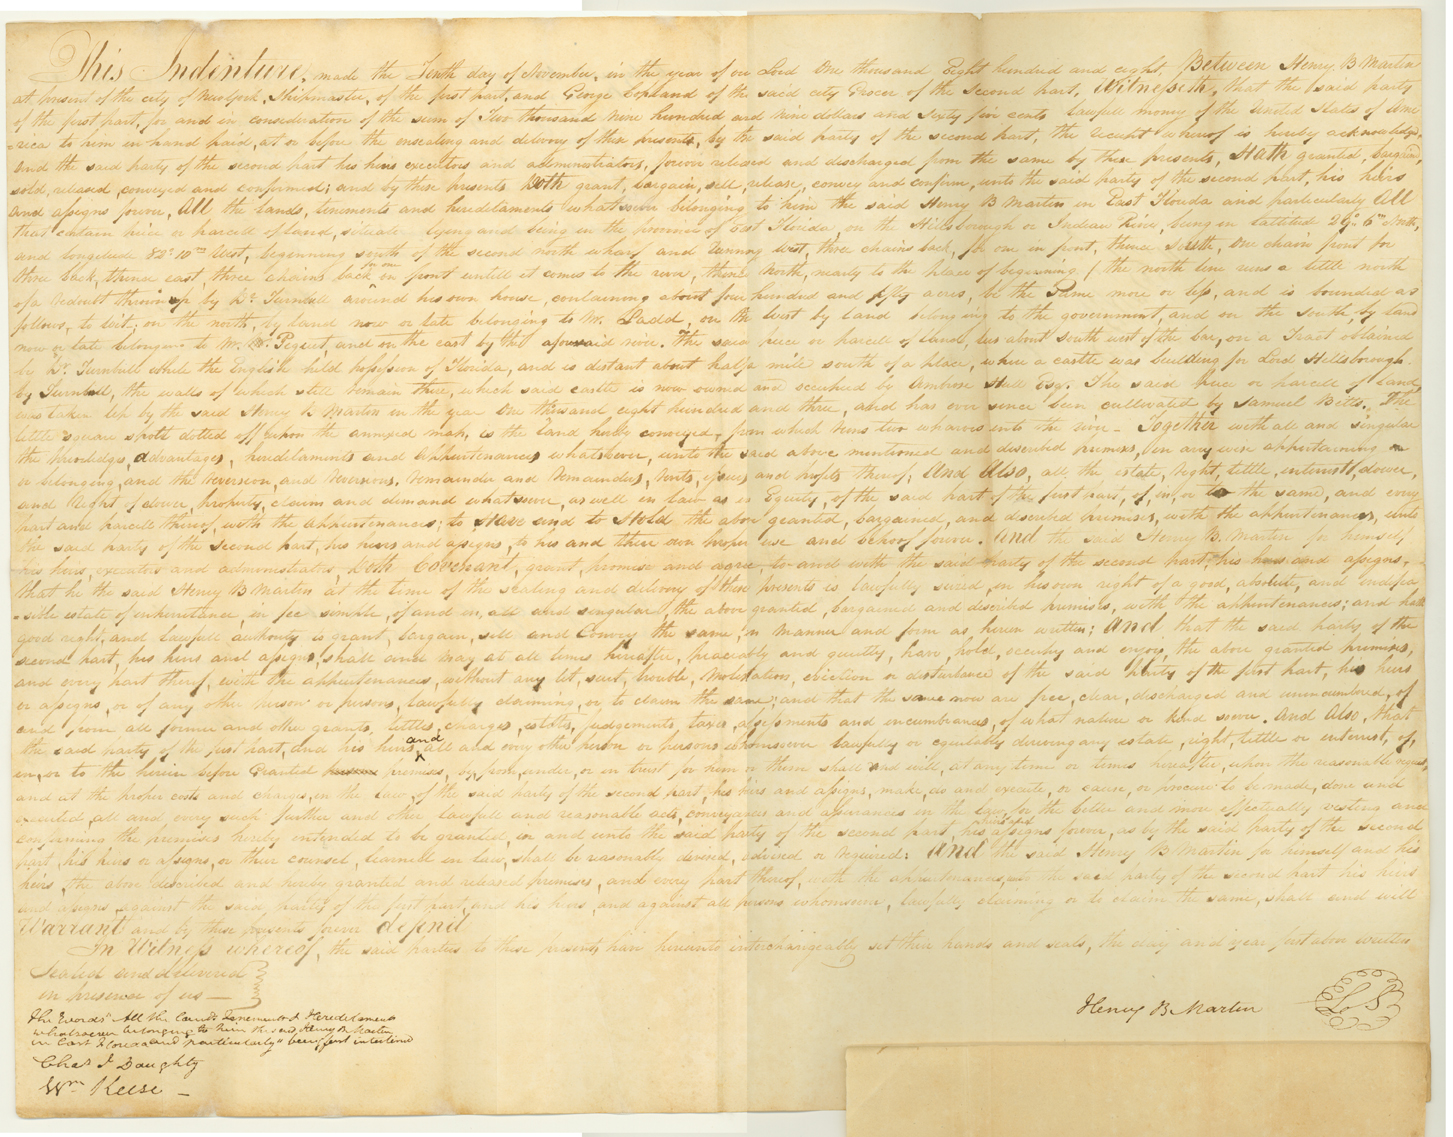 This Indenture, made the Tenth day of November, in the year of our Lord One thousand Eight hundred and eight, Between Henry B Martin
at present of the city of Newyork, Shipmaster, of the first part, and George Copland of the said city Grocer of the Second part, Witnesseth, that the said party
of the first part, for and in consideration of the sum of Two thousand Nine hundred and Nine dollars and Sixty five cents lawfull money of the United States of Ame
=rica to him in hand paid, at or before the ensealing and delivery of these presents, by the said party of the second part, the receipt whereof is hereby acknowledged,
and the said party of the second part his heirs executors and administrators, forever released and discharged from the same by these presents, Hath granted, bargained,
sold, released, conveyed and confirmed; and by these presents Doth grant, bargain, sell, release, convey and confirm, unto the said party of the second part, his heirs
and assigns forever, All the lands, tenements and hereditaments whatsoever belonging to him the said Henry B Martin in East Florida and particularly All
that certain piece or parcell of land, situate lyeing and being in the province of East Florida, on the Hillsborough or Indian River, being in latitude 29° 6m North,
and longitude 82° 10m West, beginning south of the second north wharf and running west, three chains back, for one in front, thence South, One chain front for
three back, thence east, three chains back in front untill it comes to the river, thence North, nearly to the place of begining. (the north line runs a little north
of a redoubt thrown up by Dr. Turnbull around his own house, containing about four hundred and fifty acres, be the Same more or less, and is bounded as
follows, to wit; on the north, by land now or late belonging to Mr. Ladd, on the West by land belonging to the government, and on the South, by land
now or late belonging to Mr. Mc Peguet, and on the east by the aforesaid river. The said piece or parcell of land, lies about south west of the bar, on a Tract obtained
by Dr. Turnbull while the English held possession of Florida, and is distant about half a mile south of a place, where a castle was building for Lord Hillsborough
by Turnbull, the walls of which still remain there, which said castle is now owned and occupied by Ambrose Hull Esq. The said piece or parcell of land,
was taken up by the said Henry B Martin in the year One thousand eight hundred and three, and has ever since been cultivated by Samuel Betts. The
little square spots dotted off upon the annexed map, is the land hereby conveyed, from which runs two wharves into the river - Together with all and singular
the priviledges, advantages, hereditaments and appurtenances whatsoever, unto the said above mentioned and described premises, in any wise appertaining
or belonging, and the reversion, and reversions, remainder and remainders, rents, issues and profits thereof; And Also, all the estate, right, tittle, interest, dower,
and Right of dower, property, claim and demand whatsoever, as well in law as in Equity, of the said part of the first part, of, in, or to the same, and every
part and parcell thereof, with the appurtenances; to Have and to Hold the above granted, bargained, and described premises, with the appurtenances, unto
the said party of the second part, his heirs and assigns, to his and there own proper use and behoof forever. And the said Henry B. Martin for himself,
his heirs, executors and administrators, Doth Covenant, grant, promise and agree, to and with the said party of the second part, his heirs and assigns,
that he the said Henry B Martin at the time of the sealing and delivery of these presents is lawfully seized, in his own right of a good, absolute, and indefea
-sible estate of inheritance, in fee simple, of and in, all and singular the above granted, bargained and described premises, with the appurtenances; and hath
good right, and lawfull authority to grant, bargain, sell and Convey the same, in manner and form as herein written; And that the said party of the
second part, his heirs and assigns, shall and may at all times hereafter, peaceably and quietly, have, hold, occupy and enjoy, the above granted premises,
and every part thereof, with the appurtenances, without any let, suit, trouble, molestation, eviction or disturbance of the said party of the first part, his heirs
or assigns, or of any other person or persons, lawfully claiming, or to claim the same; and that the same now are free, clear, discharged and unincumbred, of
and from all former and other grants, tittles, charges, estates, judgements, taxes, assessments and encumbrances, of what nature or kind soever. And Also, that
the said party of the first part, and his heirs, and all and every other person or persons whomsoever lawfully or equitably deriving any estate, right, tittle or interest, of,
in, or to the herein before Granted premises, by, from, under, or in trust for him or them shall and will, at any time or times hereafter, upon the reasonable request,
and at the proper costs and charges, in the law, of the said party of the second part, his heirs and assigns, make, do and execute, or cause, or procure to be made, done and
executed, all and every such further and other lawfull and reasonable acts, conveyances and assurances in the Law, for the better and more effectually vesting and
confirming the premises hereby intended to be granted, in and unto the said party of the second part, his heirs and assigns forever, as by the said party of the second
part, his heirs or assigns, or their counsel, learned in law, shall be reasonably devised, advised or required: And the said Henry B Martin for himself and his
heirs, the above described and hereby granted and released premises, and every part thereof, with the appurtenances, unto the said party of the second part his heirs
and assigns against the said party of the first part, and his heirs, and against all persons whomsoever, lawfully claiming or to claim the same, shall and will
Warrant and by these presents forever defend.
In Witness whereof, the said parties to these presents have hereunto interchangeably set their hands and seals, the day and year first above written
Sealed and delivered
in presence of us —
The words "All the lands Tenements & Hereditaments
whatsoever belonging to him the said Henry B Martin
in East Florida and particularly" being first interlined
Chas. I Daughty
Wm Keese —
Henry B Martin
L S